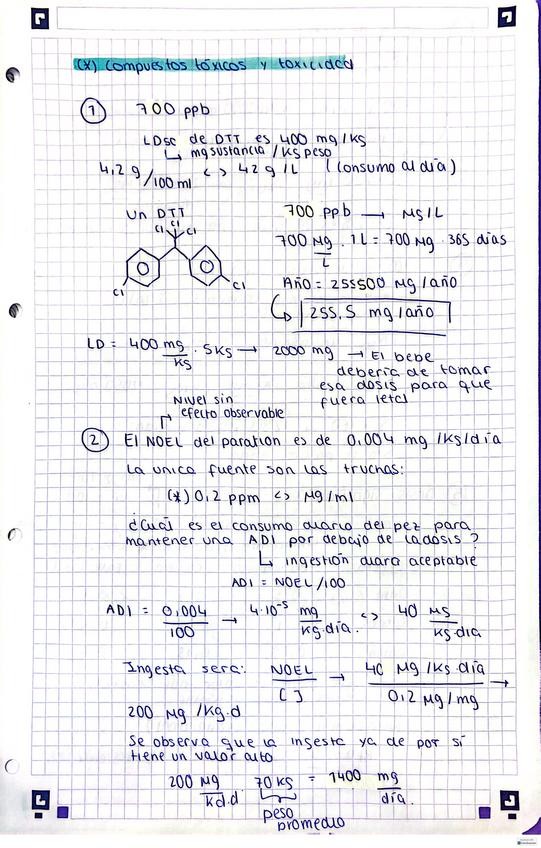 (X) Compuestos tóxicos y toxicidad
1 700 ppb
LD50 de DTT es 400 mg/kg
↳ mg sustancia / kg peso
4,2 g/100 ml <> 42 g/L (consumo al día)
Un DTT
Cl
Cl Cl
Cl Cl
700 ppb → µg/L
700 µg/L · 1L = 700 µg · 365 días
Año = 255500 µg/año
↳ 255.5 mg/año
LD = 400 mg/kg · 5kg → 2000 mg → El bebe
deberia de tomar
esa dosis para que
fuera letal
Nivel sin
efecto observable
2 El NOEL del paration es de 0,004 mg/kg/día
La unica fuente son las truchas:
(*) 0,2 ppm <> µg/ml
¿Cuál es el consumo diario del pez para
mantener una ADI por debajo de la dosis?
↳ ingestión diara aceptable
ADI = NOEL/100
ADI = 0,004/100 → 4·10⁻⁵ mg/kg·día. <> 40 µg/kg·día
Ingesta sera: NOEL/[ ] → 40 µg/kg día/0,2 µg/mg →
200 µg/kg·d
Se observa que la ingesta ya de por sí
tiene un valor alto
200 µg/kd.d · 70 kg = 1400 mg/día.
peso
promedio